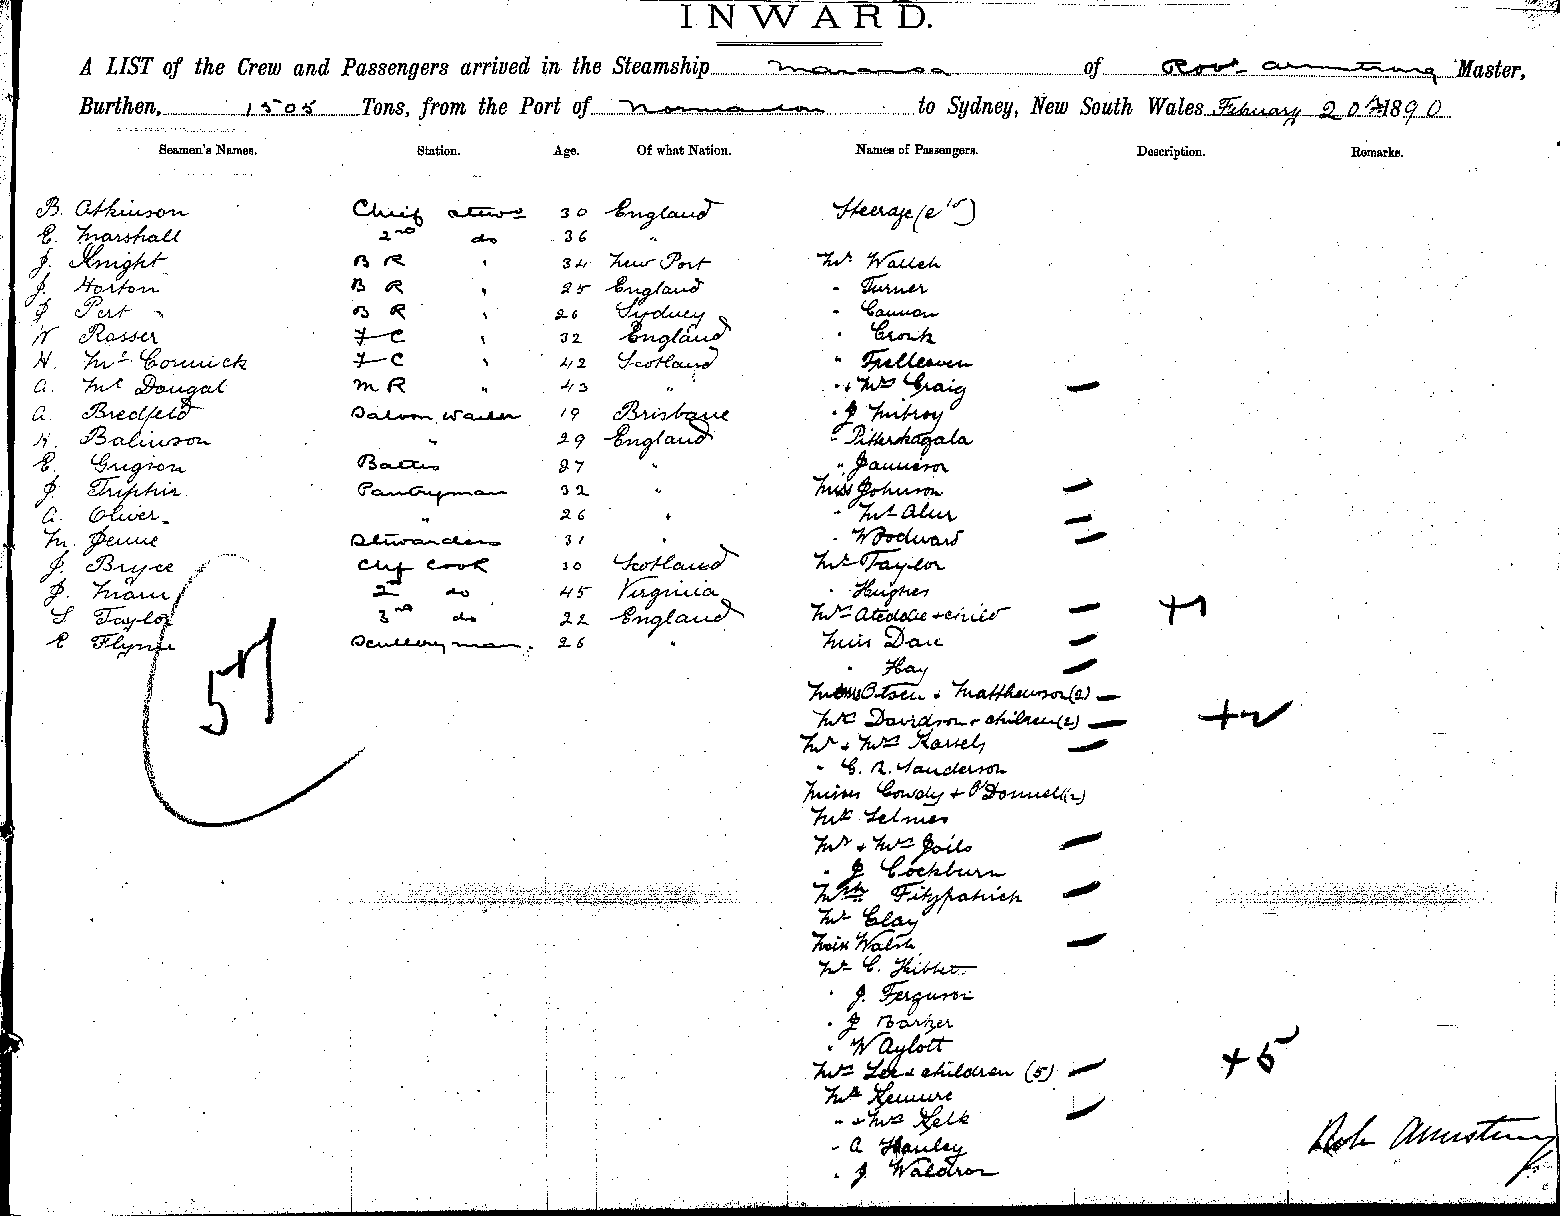 INWARD.
A LIST of the Crew and Passengers arrived in the Steamship Maranoa of Robt Armstrong Master,
Burthen, 1505 Tons, from the Port of Normanton to Sydney, New South Wales February 20th 1890
Seamen's Names. Station. Age. Of what Nation. Names of Passengers. Description. Remarks.
B. Atkinson Chief 30 England Steerage
E. Marshall 2nd do 36 "
J. Knight B R " 34 New Port Mr Walsh
J. Horton B R " 25 England " Turner
J Pert B R " 26 Sydney " Cannon
W Rosser F C " 32 England " Cronk
H. McCormick F C " 42 Scotland " Trelleaven
A. McDougal M R " 43 " " + Mrs Craig
A Bredfeld Saloon Waiter 19 Brisbane " J
H. " 29 England "
E. Grigson 27 " " Jamieson
J. Pantryman 32 " Miss Johnson
A. Oliver " 26 " "
M. Stewardess 31 " " Woodward
J. Bryce Chf Cook 30 Scotland Mr Taylor
J. Mann 2nd do 45 Virginia " Hughes
S Taylor 3rd do 22 England Mrs + child +1
E Flynn Scullery man. 26 " Miss
57
" Hay
+ Matthewson (2)
Mrs Davidson + children (2) +2
Mr + Mrs
" C. R. Sanderson
Misses Cowdy + O'Donnell (2)
Mr Selmes
Mr + Mrs
" J Cockburn
Fitzpatrick
Mr Clay
Miss Walsh
Mr C.
" J. Ferguson
" J Barker
" W Aylott
Mrs Lee + children (5) +5
Mr
" + Mrs Kelk
" A Hanley
" J Waldron
Rob Armstrong